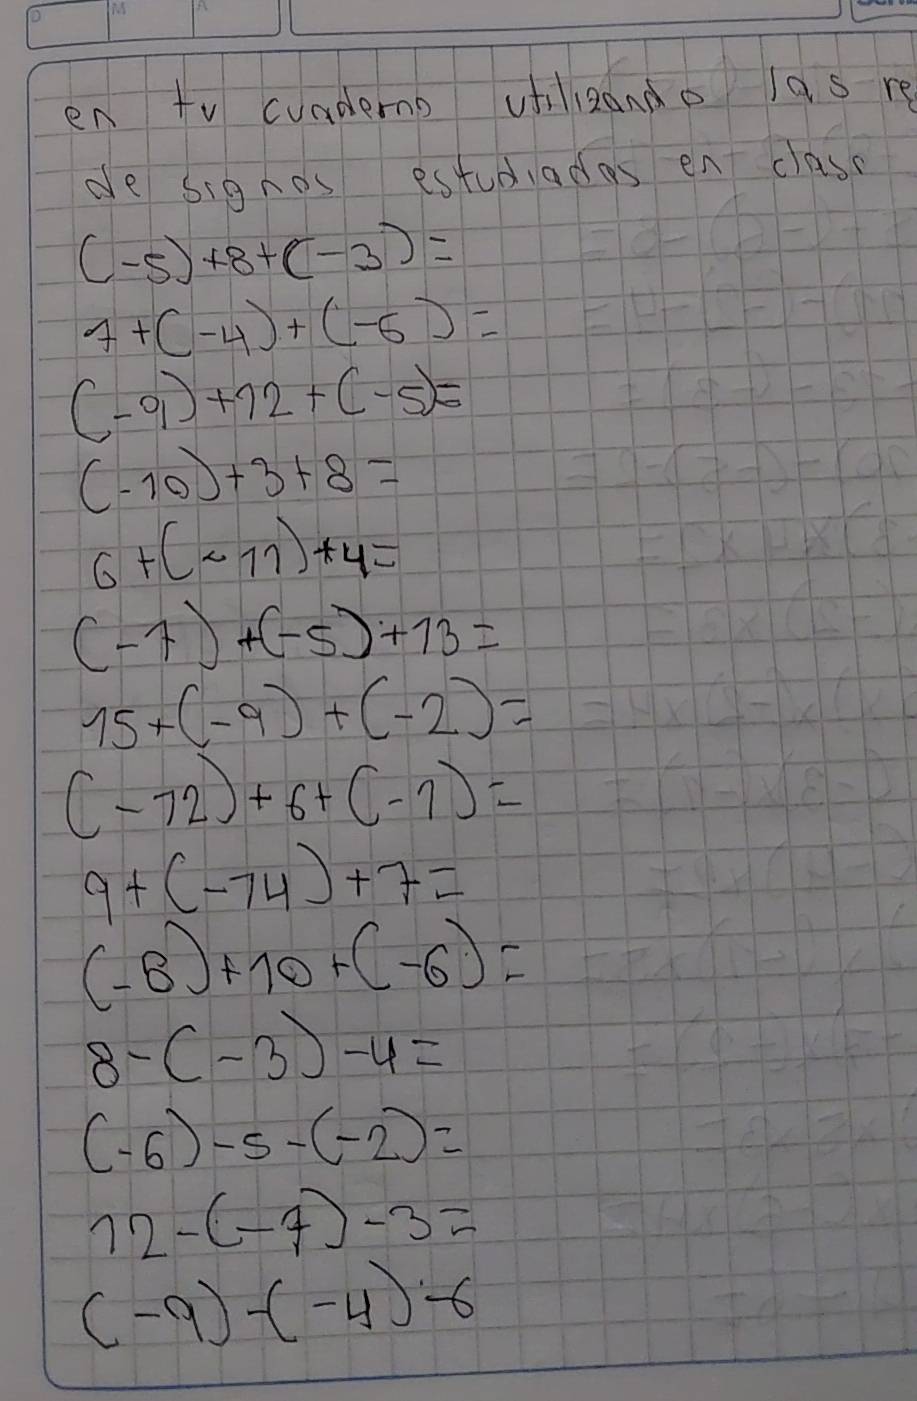 D M A
en tu cuaderno utilizando las re
de signos estudiadas en clase
(-5)+8+(-3)=
7+(-4)+(-6)=
(-9)+12+(-5)=
(-10)+3+8=
6+(-11)+4=
(-7)+(-5)+13=
15+(-9)+(-2)=
(-12)+6+(-1)=
9+(-14)+7=
(-8)+10+(-6)=
8-(-3)-4=
(-6)-5-(-2)=
12-(-7)-3=
(-9)-(-4)-6